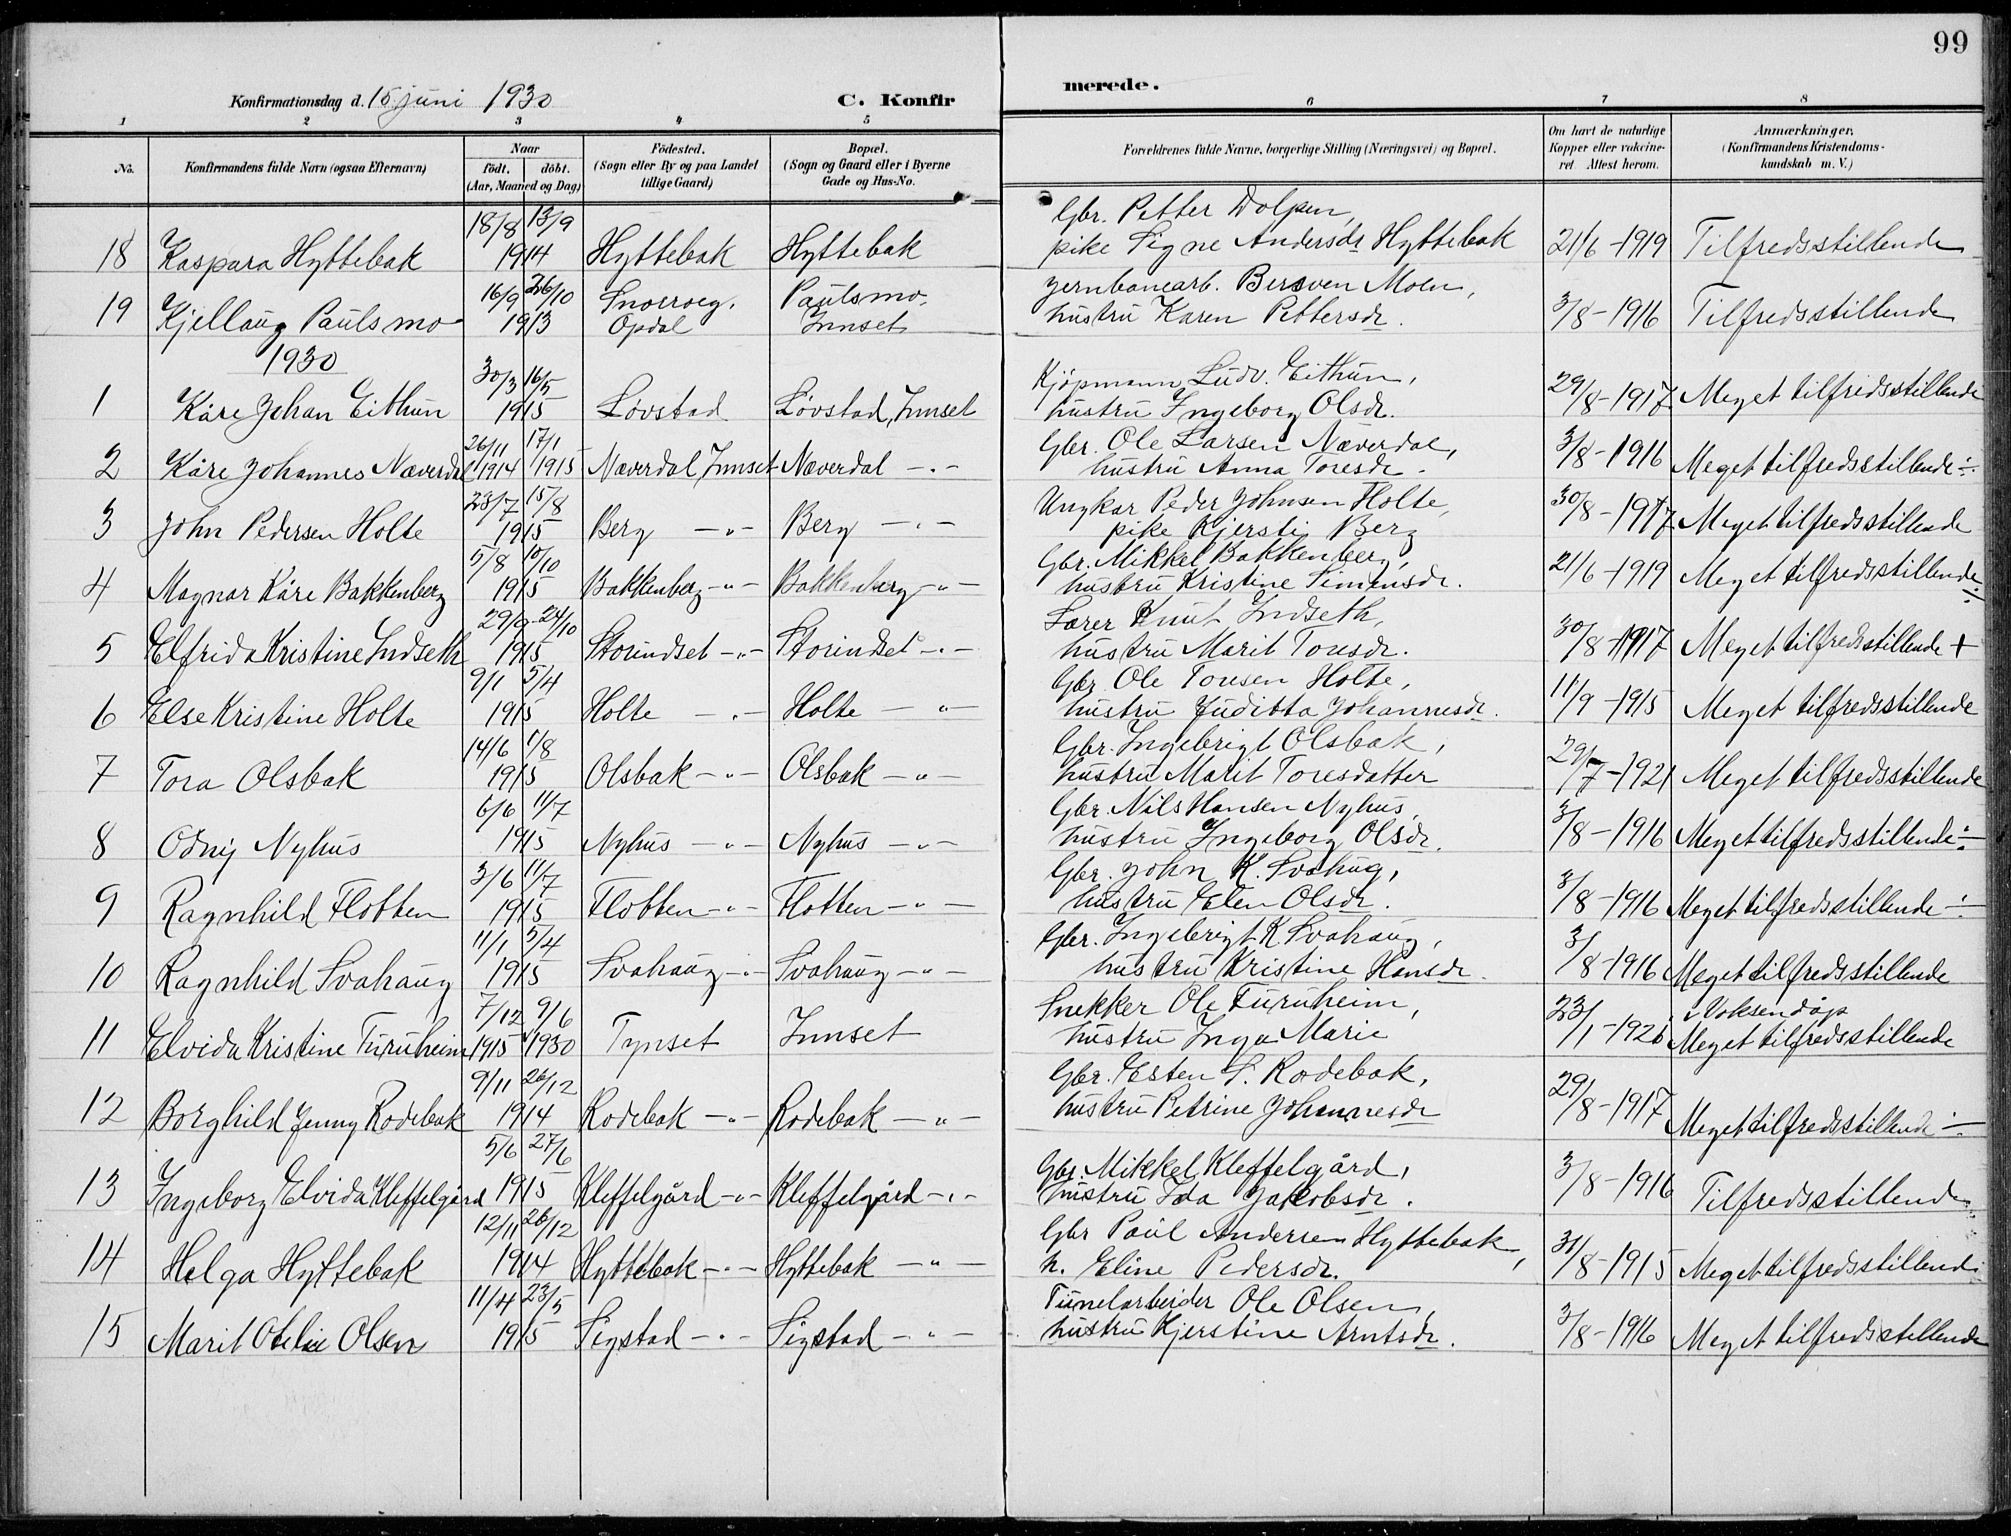 99
Konfirmationsdag d. 15 juni 1930
C. Konfir
merede.
1 2 3 4 5 6 7 8
No.
Konfirmandens fulde Navn (ogsaa Efternavn)
Naar
født. døbt.
(Aar, Maaned og Dag)
Fødested.
(Sogn eller By og paa Landet
tillige Gaard)
Bopæl.
(Sogn og Gaard eller i Byerne
Gade og Hus-No.
Forældrenes fulde Navne, borgerlige Stilling (Næringsvei) og Bopæl.
Om havt de naturlige
Kopper eller vakcine-
ret. Attest herom.
Anmærkninger,
(Konfirmandens Kristendoms-
kundskab m. V.)
18/8 13/9 Gbr. Petter Dolpen,
18 Kaspara Hyttebak 1914 Hyttebak Hyttebak pike Signe Andersdr Hyttebak 21/6-1919 Tilfredsstillende
16/9 26/10 Snoeroeg. Paulsmo. jernbanearb. Bersven Moen,
19 Kjellaug Paulsmo 1913 Opdal Innset hustru Karen Pettersdr. 3/8-1916 Tilfredsstillende
1930
30/3 16/5 Kjøpmann Ludv. Eithun,
1 Kåre Johan Eithun 1915 Løvstad Løvstad, Innset hustru Ingeborg Olsdr. 29/8-1917 Meget tilfredsstillende
26/11 17/1 Gbr. Ole Larsen Næverdal,
2 Kåre Johannes Næverdal 1914 1915 Næverdal, Innset Næverdal -"- hustru Anna Toresdr. 3/8-1916 Meget tilfredsstillende ÷
23/7 15/8 Ungkar Peder Johnsen Holte,
3 John Pedersen Holte 1915 Berg -"- Berg -"- pike Kjersti Berg 30/8-1917 Meget tilfredsstillende
5/8 10/10 Gbr. Mikkel Bakkenberg,
4 Magnar Kåre Bakkenberg 1915 Bakkenberg -"- Bakkenberg -"- hustru Kristine Simensdr. 21/6-1919 Meget tilfredsstillende ÷
29/9 24/10 Lærer Knut Indseth,
5 Elfrida Kristine Indseth 1915 Storindset -"- Storindset -"- hustru Marit Toresdr. 30/8-1917 Meget tilfredsstillende +
9/1 5/4 Gbr. Ole Toresen Holte,
6 Else Kristine Holte 1915 Holte -"- Holte -"- hustru Juditta Johannesdr. 11/9-1915 Meget tilfredsstillende
14/6 1/8 Gbr. Ingebrigt Olsbak,
7 Tora Olsbak 1915 Olsbak -"- Olsbak -"- hustru Marit Toresdatter 29/7-1921 Meget tilfredsstillende
6/6 11/7 Gbr. Nils Hansen Nyhus,
8 Odny Nyhus 1915 Nyhus -"- Nyhus -"- hustru Ingeborg Olsdr. 3/8-1916 Meget tilfredsstillende ÷
3/6 11/7 Gbr. John K. Svahug,
9 Ragnhild Flotten 1915 Flotten -"- Flotten -"- hustru Elen Olsdr. 3/8-1916 Meget tilfredsstillende ÷
11/1 5/4 Gbr. Ingebrigt K Svahaug,
10 Ragnhild Svahaug 1915 Svahaug -"- Svahaug -"- hustru Kristine Hansdr. 3/8-1916 Meget tilfredsstillende
7/12 9/6 Snekker Ole Furuheim, Voksendøp
11 Elvida Kristine Furuheim 1915 1930 Tynset Innset hustru Inga Marie 23/1-1926 Meget tilfredsstillende
9/11 26/12 Gbr. Esten S. Rodebak,
12 Borghild Jenny Rodebak 1914 Rodebak -"- Rodebak -"- hustru Petrine Johannesdr 29/8-1917 Meget tilfredsstillende ÷
5/6 27/6 Gbr. Mikkel Kleffelgård,
13 Ingeborg Elvida Kleffelgård 1915 Kleffelgård -"- Kleffelgård -"- hustru Ida Jakobsdr. 3/8-1916 Tilfredsstillende
12/11 26/12 Gbr Paul Andersen Hyttebak,
14 Helga Hyttebak 1914 Hyttebak -"- Hyttebak -"- h. Eline Pedersdr. 31/8-1915 Meget tilfredsstillende
11/4 23/5 Tunelarbeider Ole Olsen,
15 Marit Otelie Olsen 1915 Sigstad -"- Sigstad -"- hustru Kjerstine Arntsdr. 3/8-1916 Meget tilfredsstillende